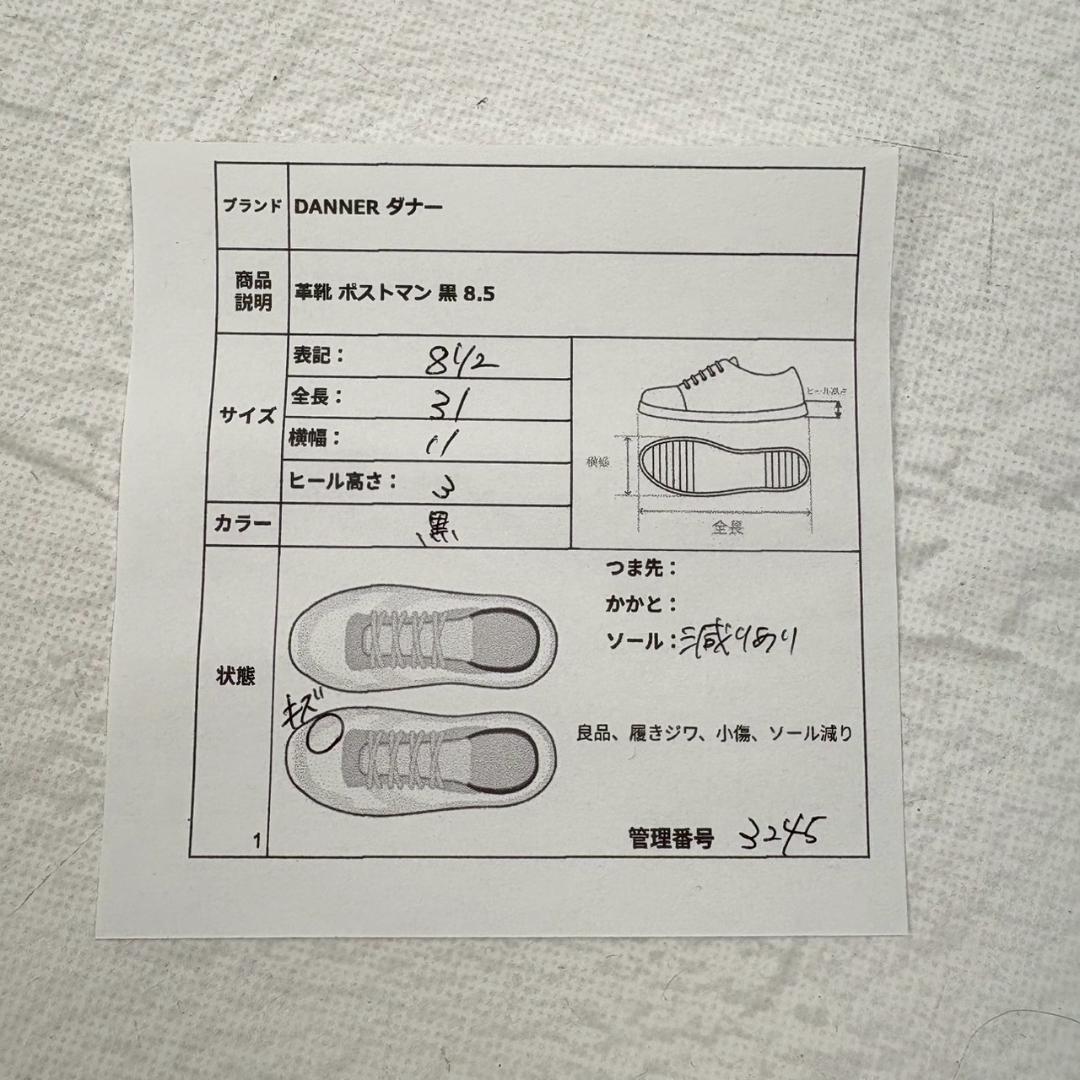 ブランド DANNER ダナー
商品説明 革靴 ポストマン 黒 8.5
サイズ
表記： 8 1/2
全長： 31
横幅： 11
ヒール高さ： 3
ヒール高さ
横幅
全長
カラー 黒
状態
つま先：
かかと：
ソール： 減りあり
キズ
良品、履きジワ、小傷、ソール減り
1
管理番号 3245